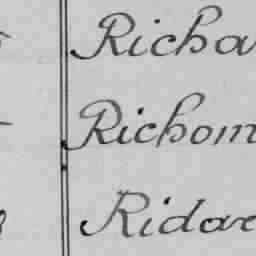 Richa
Richom
Ridare